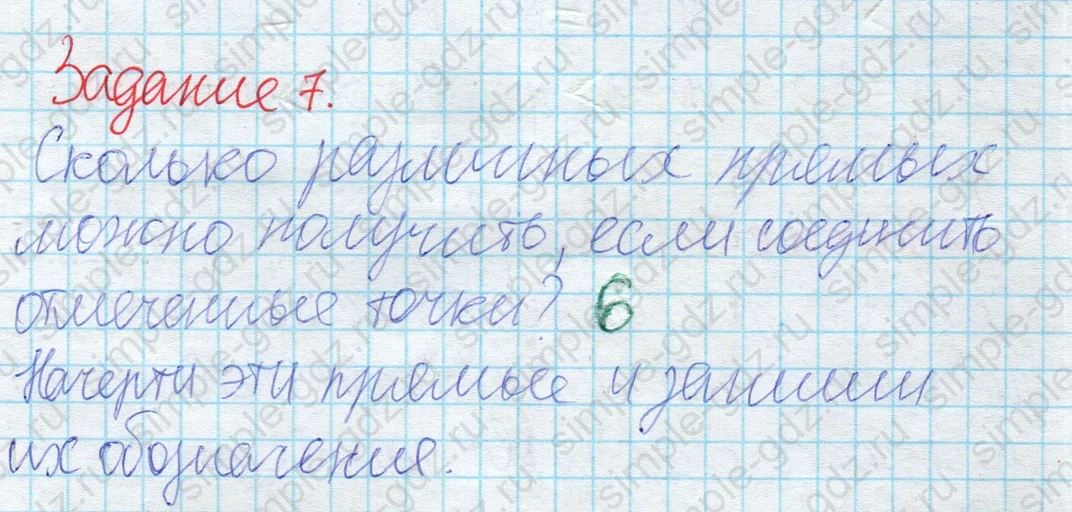 Задание 7.
Сколько различных прямых
можно получить, если соединить
отмеченные точки? 6
Начерти эти прямые и запиши
их обозначения.
simple-gdz.ru